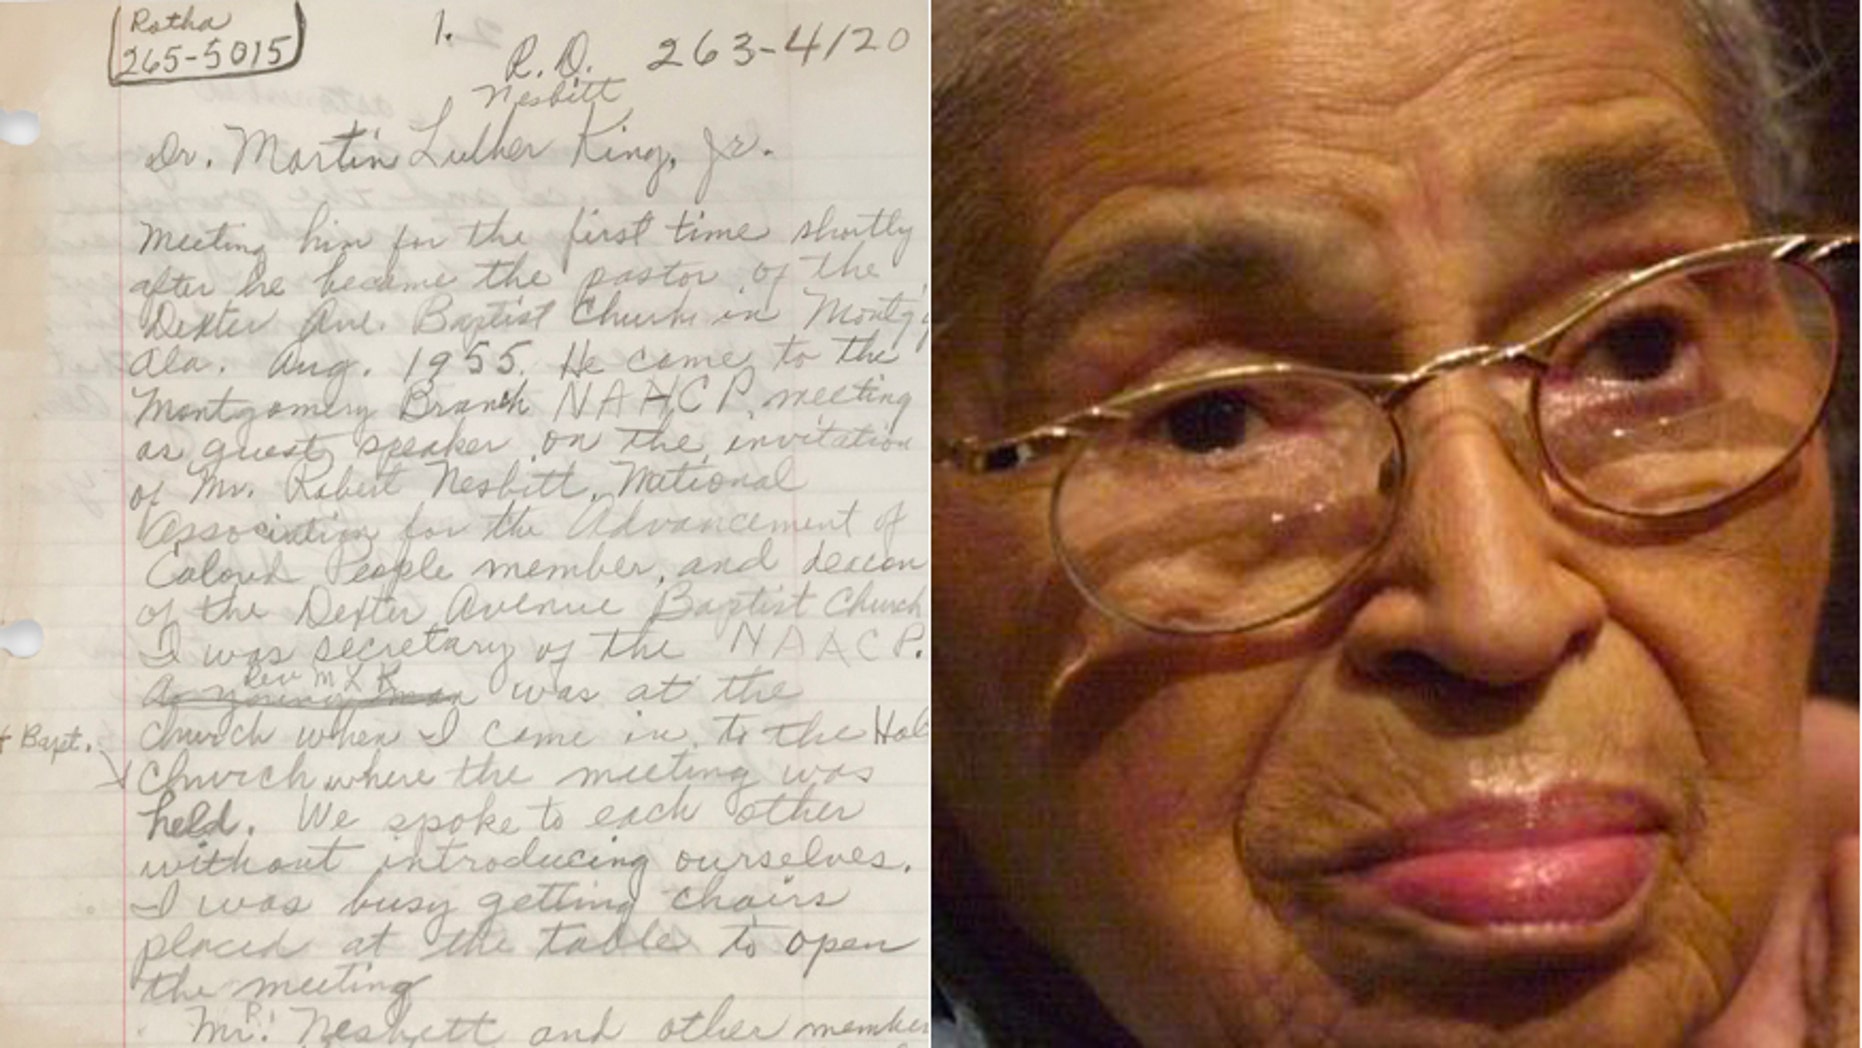 Rotha
265-5015
1.
R.D. 263-4120
Nesbitt
Dr. Martin Luther King, Jr.
Meeting him for the first time shortly
after he became the pastor of the
Dexter Ave. Baptist Church in Montg
Ala. Aug. 1955. He came to the
Montgomery Branch NAACP, meeting
as guest speaker on the invitation
of Mr. Robert Nesbitt, National
Association for the Advancement of
Colored People member, and deacon
of the Dexter Avenue Baptist Church
I was secretary of the NAACP.
Rev M L K
A young man was at the
church when I came in, to the Hol
+ Bapt.
Church where the meeting was
held. We spoke to each other
without introducing ourselves.
I was busy getting chairs
placed at the table to open
the meeting
Mr. R. Nesbitt and other member